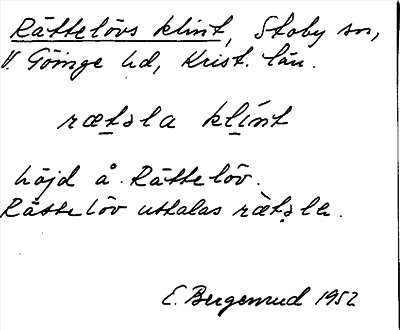 Rättelövs klint, Stoby sn,
V. Göinge hd, Krist. län.
ræt̠əla kl̠ínt
höjd å Rättelöv.
Rättelöv uttalas ræ̀t̠əla.
E. Bergenrud 1952